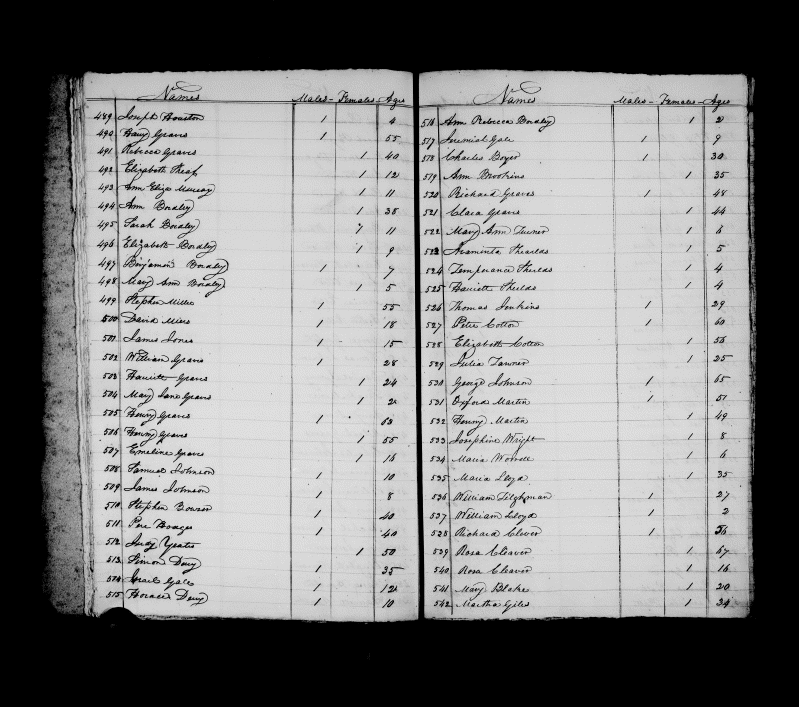 Names Males - Females - Ages
489 Joseph Houston 1 4
490 Harry Graves 1 55
491 Rebecca Graves 1 40
492 Elizabeth 1 12
493 Ann Eliza Murray 1 11
494 Ann Bordley 1 38
495 Sarah Bordley 1 11
496 Elizabeth Bordley 1 9
497 Binjamin Bordley 1 7
498 Mary Ann Bordley 1 5
499 Stephen Miller 1 55
500 David Miers 1 18
501 James Jones 1 15
502 William Graves 1 28
503 Harriett Graves 1 24
504 Mary Jane Graves 1 2
505 Henry Graves 1 63
506 Henny Graves 1 55
507 Emeline Graves 1 16
508 Samuel Johnson 1 10
509 James Johnson 1 8
510 Stephen Bowser 1 40
511 Pere 1 40
512 Judy Yeates 1 50
513 Simon Deny 1 35
514 Israel Gale 1 12
515 Horace Deny 1 10
Names Males - Females - Ages
516 Ann Rebecca Bordley 1 2
517 Jeremiah Gale 1 9
518 Charles Boyer 1 30
519 Ann Brookins 1 35
520 Richard Graves 1 48
521 Clara Graves 1 44
522 Mary Ann Turner 1 6
523 Araminta 1 5
524 Temperance 1 4
525 Hariett 1 4
526 Thomas Jenkins 1 29
527 Peter Cotton 1 60
528 Elizabeth Cotton 1 56
529 Julia Tawner 1 25
530 George Johnson 1 65
531 Oxford Martin 1 51
532 Henny Martin 1 49
533 Josephine Wright 1 8
534 Maria Worrell 1 6
535 Maria Lloyd 1 35
536 William Tilghman 1 27
537 William Lloyd 1 2
538 Richard Clever 1 56
539 Rosa Cleaver 1 67
540 Rosa Cleaver 1 16
541 Mary Blake 1 20
542 Martha Giles 1 34